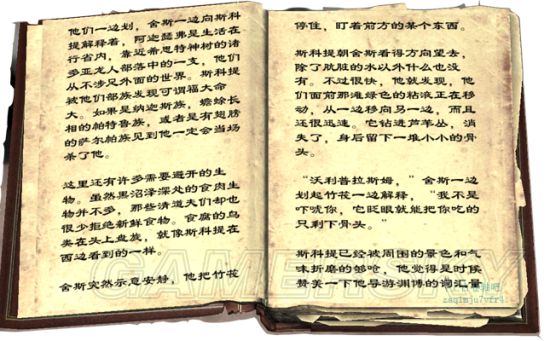 他们一边划，舍斯一边向斯科
提解释着，阿迦瑟弗是生活在
行省内，靠近希思特神树的诸
多亚龙人部落中的一支，他们
从不涉足外面的世界。斯科提
被他们部族发现可谓福大命
大。如果是纳迦斯族，蟾蜍长
相的帕特鲁族，或者是有翅膀
的萨尔帕族见到他一定会当场
杀了他。
这里还有许多需要避开的生
物。虽然黑沼泽深处的食肉生
物并不多，那些清道夫们却也
很少拒绝新鲜食物。食腐的鸟
类在头上盘旋，就像斯科提在
西边看到的一样。
舍斯突然示意安静，他把竹筏
停住，盯着前方的某个东西。
斯科提朝舍斯看得方向望去，
除了肮脏的水以外什么也没
有。不过很快，他就发现，他
们面前那滩绿色的粘液正在移
动，从一边移向另一边，而且
还很迅速。它钻进芦苇丛，消
失了，身后留下一堆小小的骨
头。
“沃利普拉斯姆，”舍斯一边
划起竹筏一边解释，“我不是
吓唬你，它眨眼就能把你吃的
只剩下骨头。”
斯科提已经被周围的景色和气
味折磨的够呛，他觉得是时候
赞美一下他导游渊博的词汇量
GAMERSKY
zaqimju7yfr4